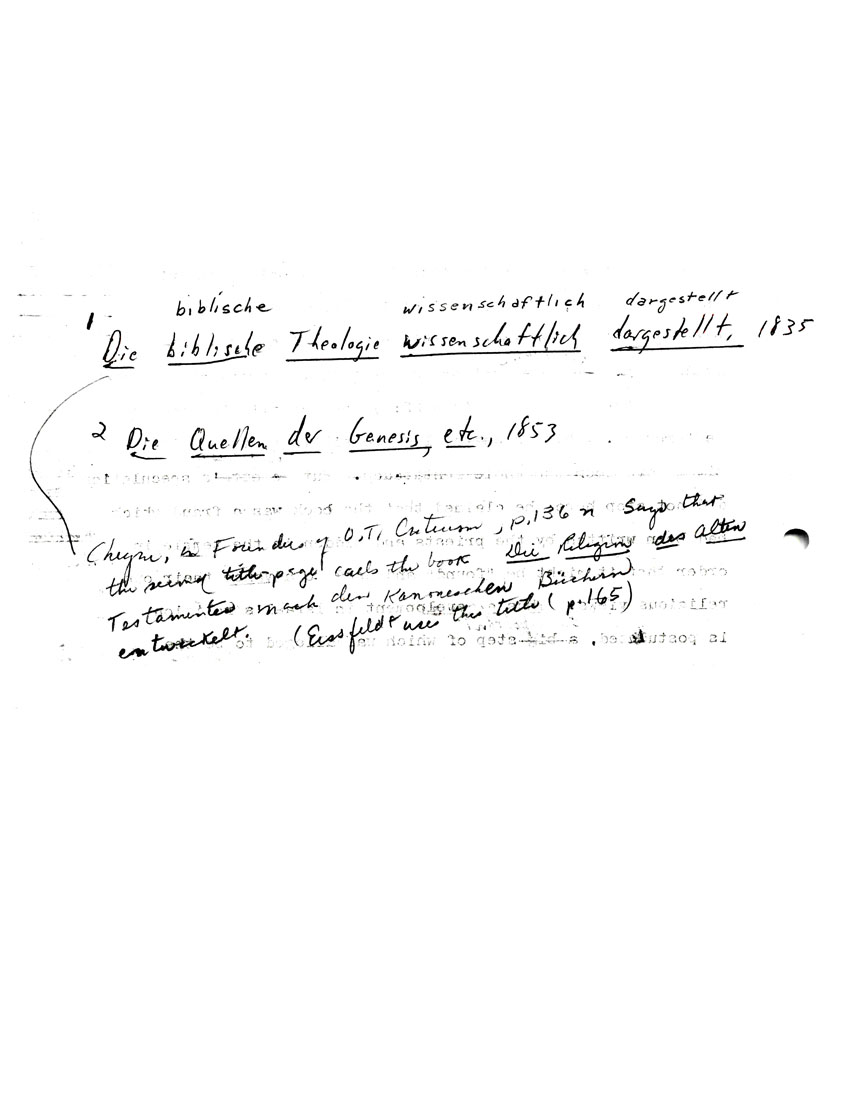 biblische wissenschaftlich dargestellt
1 Die biblische Theologie wissenschaftlich dargestellt, 1835
2 Die Quellen der Genesis, etc., 1853
Cheyne, in Founders of O.T. Criticism, p.136 n Says that
the second title-page calls the book Die Religion des Alten
Testamentes nach den Kanonischen Büchern
entwickelt. (Eissfeldt uses this title (p.165)